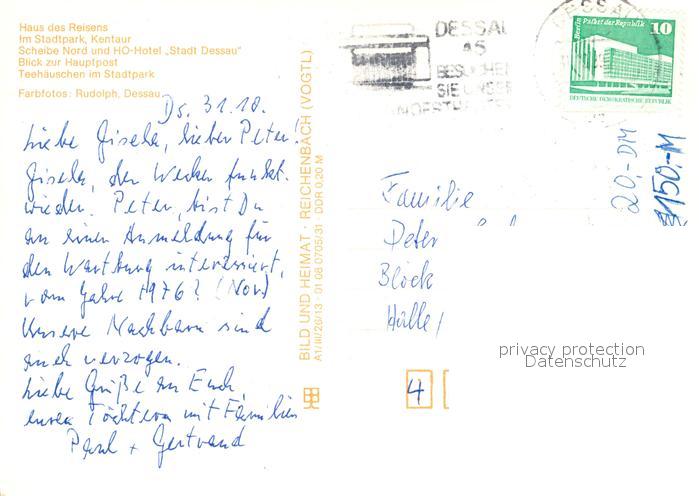 Haus des Reisens
Im Stadtpark, Kentaur
Scheibe Nord und HO-Hotel „Stadt Dessau"
Blick zur Hauptpost
Teehäuschen im Stadtpark
Farbfotos: Rudolph, Dessau
Ds. 31.10.
Liebe Gisela, lieber Peter.
Gisela, der Wecker funkt.
wieder. Peter, bist Du
an einer Anmeldung für
den Wartburg interessiert,
vom Jahre 1976? (Nov.)
Unsere Nachbarn sind
auch verzogen.
Liebe Grüße an Euch
euren Töchtern mit Familien
Paul + Gertraud
BILD UND HEIMAT · REICHENBACH (VOGTL)
A1/III/26/13 · 01 08 0705/31 · DDR 0,20 M
DESSAU
BESUCHEN
SIE UNSER
DESSAU
Berlin Palast der Republik
10
DEUTSCHE DEMOKRATISCHE REPUBLIK
20,-DM
150,-M
Familie
Peter
Block
Halle/
4
privacy protection
Datenschutz